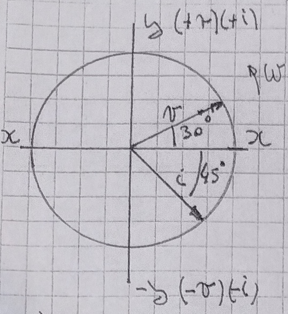 y (+v)(+i)
RW
v
30°
x
x
i
45°
-y (-v)(-i)